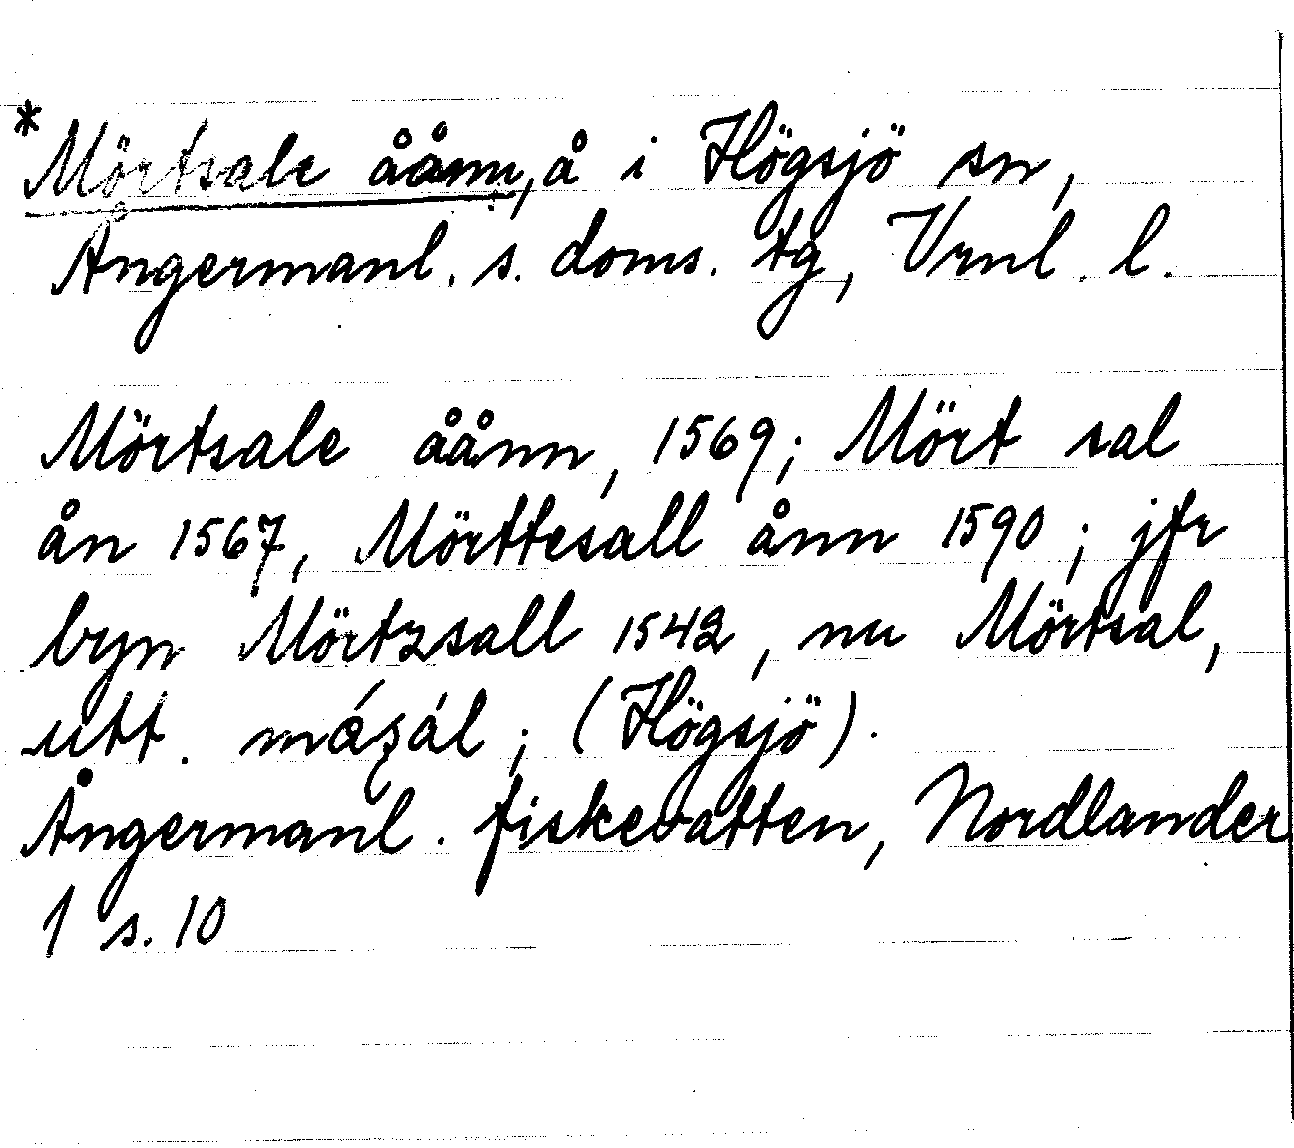 *Mörtsale åånn, å i Högsjö sn,
Ångermanl. s. doms. tg, Vrnl. l.
Mörtsale åånn, 1569; Mört sal
ån 1567, Mörttesall ånn 1590; jfr
byn Mörtzsall 1542, nu Mörtsal,
utt. má̧sál; (Högsjö).
Ångermanl. fiskevatten, Nordlander
1 s. 10